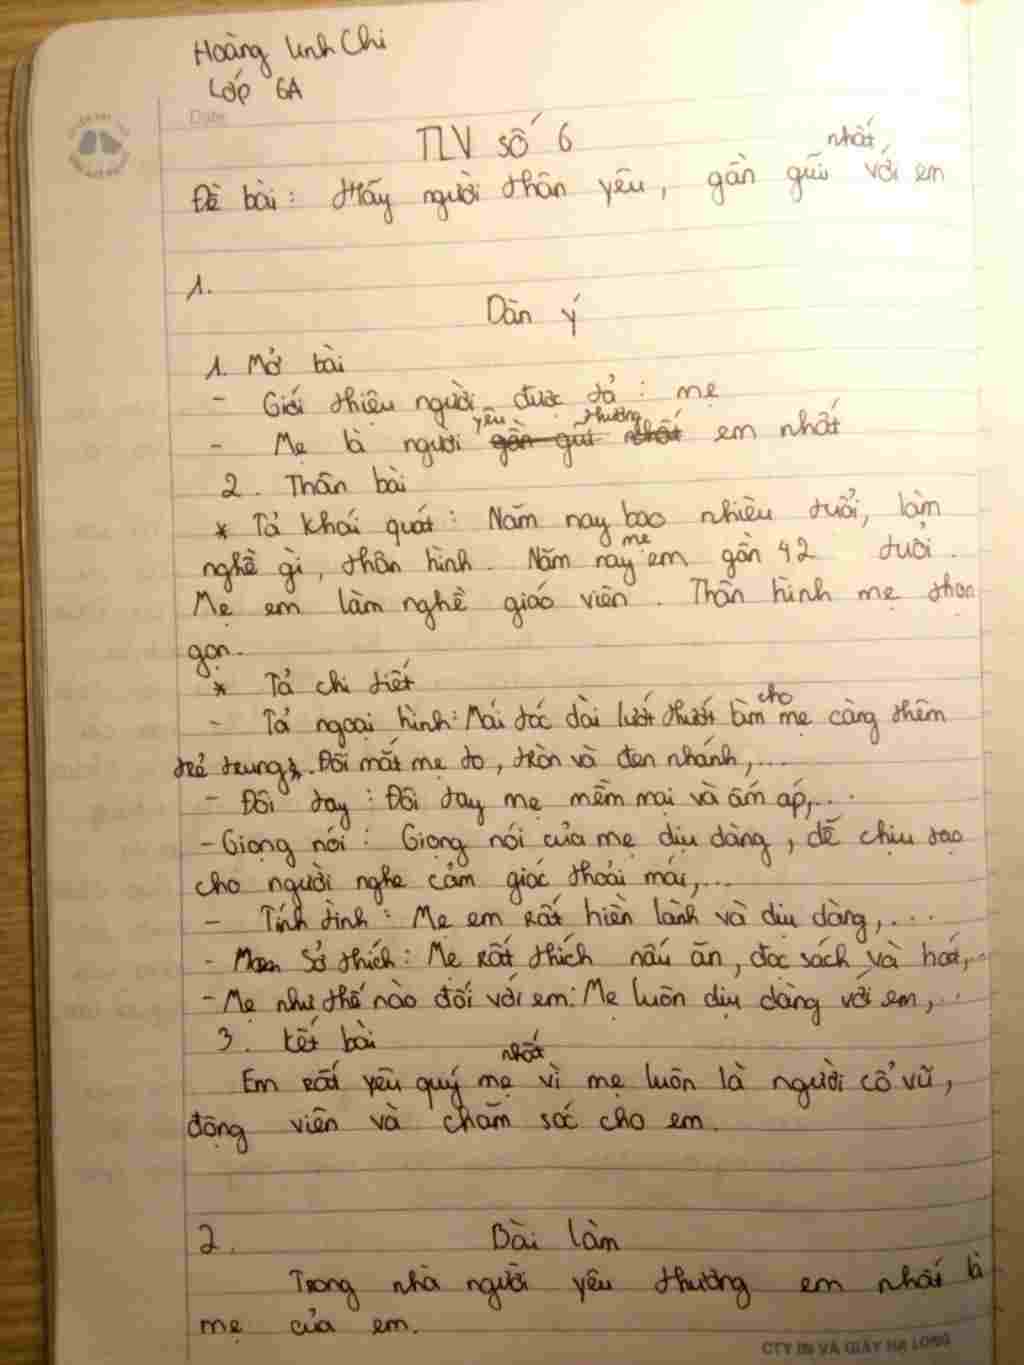 Hoàng Linh Chi
Lớp 6A
Date
TLV số 6
Đề bài: Hãy người thân yêu, gần gũi nhất với em
1.
Dàn ý
1. Mở bài
- Giới thiệu người được tả: mẹ
- Mẹ là người yêu thương em nhất
2. Thân bài
* Tả khái quát: Năm nay bao nhiêu tuổi, làm
nghề gì, thân hình. Năm nay mẹ em gần 42 tuổi.
Mẹ em làm nghề giáo viên. Thân hình mẹ thon
gọn.
* Tả chi tiết
- Tả ngoại hình: Mái tóc dài lướt thướt làm cho mẹ càng thêm
trẻ trung. Đôi mắt mẹ to, tròn và đen nhánh,...
- Đôi tay: Đôi tay mẹ mềm mại và ấm áp,...
- Giọng nói: Giọng nói của mẹ dịu dàng, dễ chịu tạo
cho người nghe cảm giác thoải mái,...
- Tính tình: Mẹ em rất hiền lành và dịu dàng,...
- Sở thích: Mẹ rất thích nấu ăn, đọc sách và hát,..
- Mẹ như thế nào đối với em: Mẹ luôn dịu dàng với em,...
3. Kết bài
Em rất yêu quý mẹ nhất vì mẹ luôn là người cổ vũ,
động viên và chăm sóc cho em.
2. Bài làm
Trong nhà người yêu thương em nhất là
mẹ của em.
CTY IN VÀ GIẤY HẠ LONG